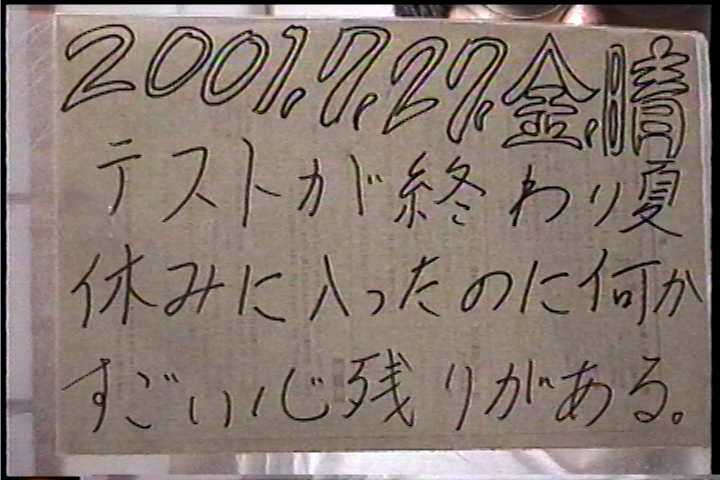 2001.7.27.金.晴
テストが終わり夏
休みに入ったのに何か
すごい心残りがある。